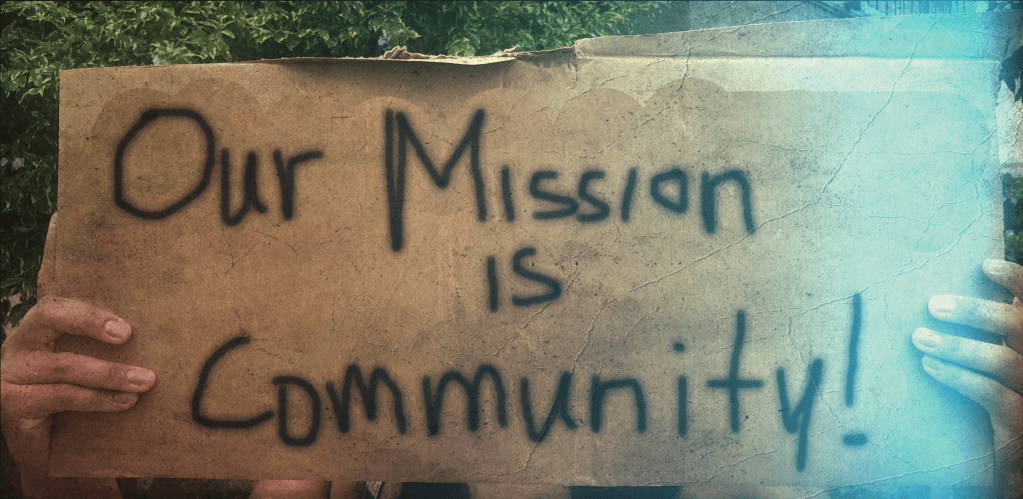 Our Mission
is
Community!